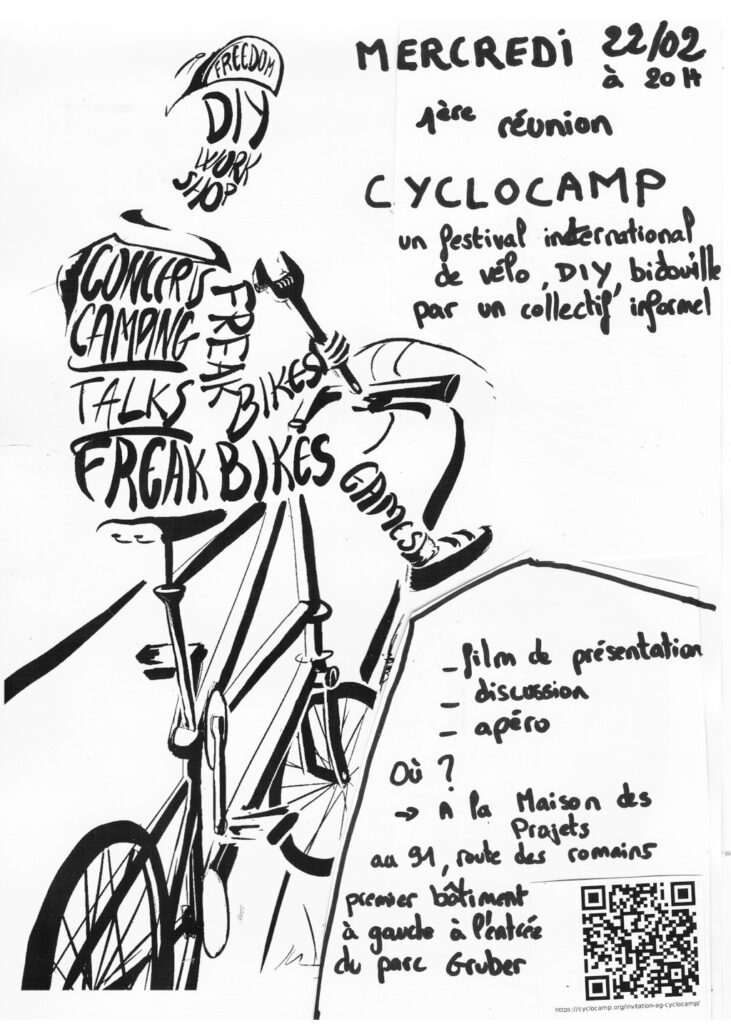 MERCREDI 22/02
à 20H
1ère réunion
CYCLOCAMP
un festival international
de vélo, DIY, bidouille
par un collectif informel
FREEDOM
DIY
WORK
SHOP
CONCERTS
CAMPING
TALKS
FREAK BIKES
FREAK
BIKES
GAMES
- film de présentation
- discussion
- apéro
Où ?
→ A la Maison des
Projets
au 91, route des romains
premier bâtiment
à gauche à l'entrée
du parc Gruber
https://cyclocamp.org/invitation-ag-cyclocamp/